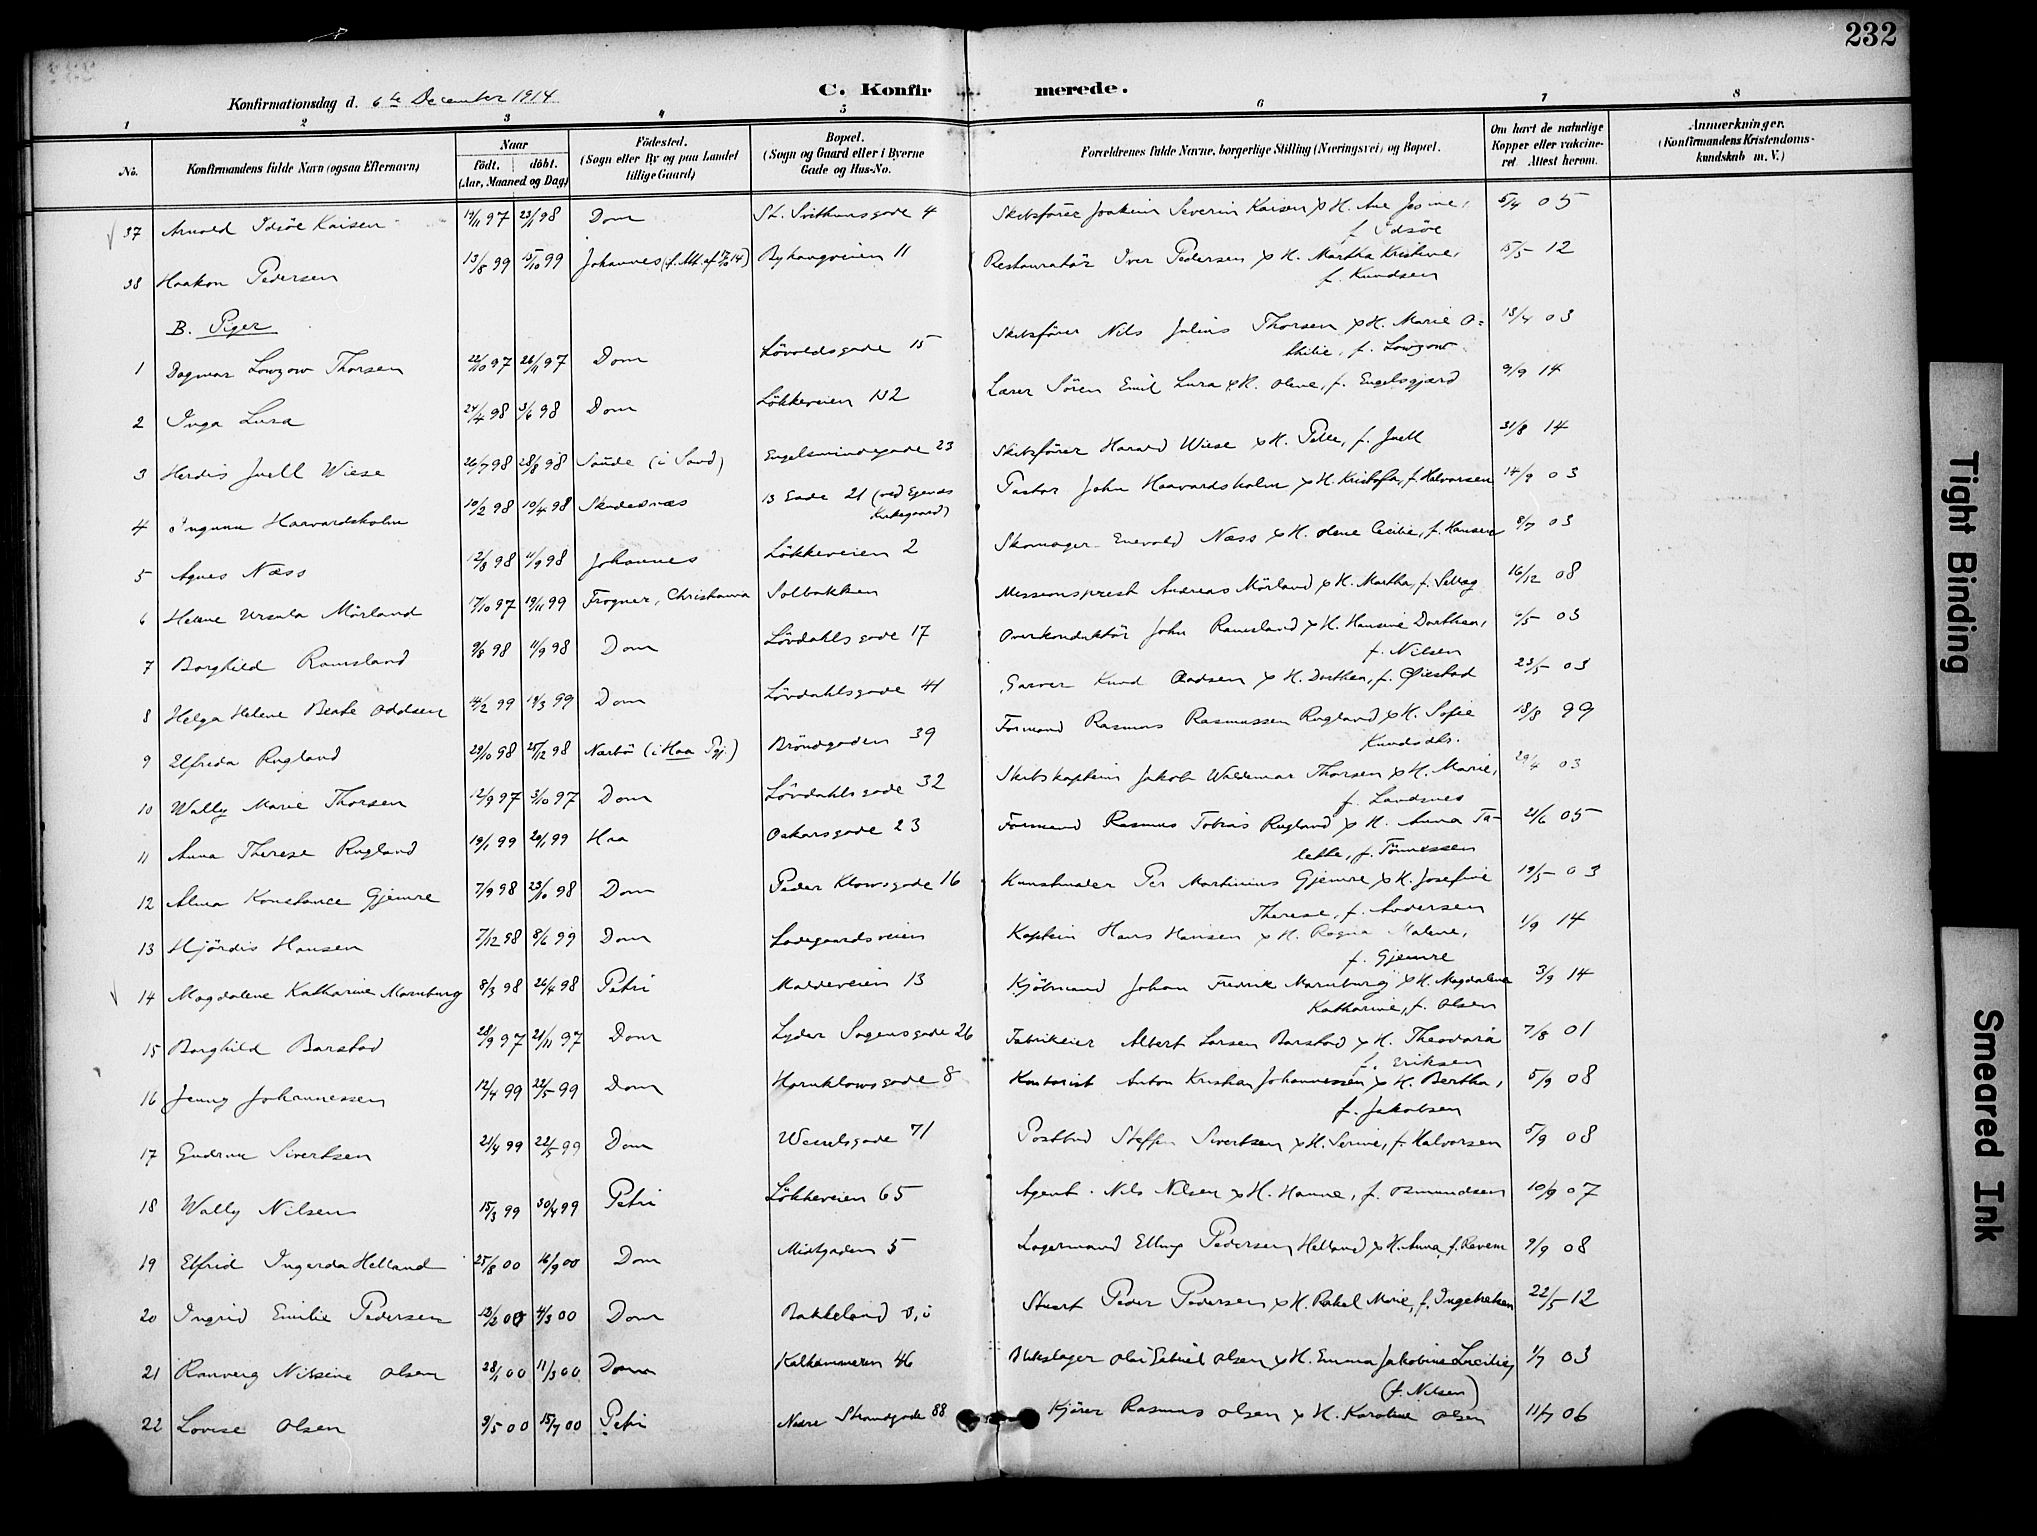 232
Konfirmationsdag d. 6te December 1914
C. Konfirmerede.
1 2 3 4 5 6 7 8
No. Konfirmandens fulde Navn (ogsaa Efternavn) Naar födt. döbt. (Aar, Maaned og Dag) Födested. (Sogn eller By og paa Landet tillige Gaard) Bopæl. (Sogn og Gaard eller i Byerne Gade og Hus-No. Forældrenes fulde Navne, borgerlige Stilling (Næringsvei) og Bopæl. Om havt de naturlige Kopper eller vaccineret Attest herom. Anmærkninger. (Konfirmandens Kristendomskundskab m. V.)
37 Arnold Idsöe Kaisen 19/11 97 23/1 98 Dom St. Svithunsgade 4 Skibsförer Joakim Severin Kaisen & H. Ane Josine, 5/4 05
f. Idsöe
38 Haakon Pedersen 13/8 99 15/10 99 Johannes Byhaugveien 11 Restauratör Iver Pedersen & H. Martha Kristine, 15/5 12
f. Knudsen
B. Piger
1 Dagmar Lowzow Thorsen 22/10 97 26/11 97 Dom Lövoldsgade 15 Skibsförer Nils Julius Thorsen & H. Marie O= 13/4 03
thilie, f. Lowzow
2 Inga Lura 24/4 98 3/6 98 Dom Lökkeveien 112 Lærer Sören Emil Lura & H. Olene, f. Engelsgjærd 9/9 14
3 Herdis Juell Wiese 26/7 98 28/8 98 Saude (i Sand) Engelsmindegade 23 Skibsförer Harald Wiese & H. f. Juell 31/8 14
4 Ingunn Haavardsholm 10/2 98 10/4 98 Skudesnæs 13 Gade 21 (ved Egenæs Kirkegaard) Pastor John Haavardsholm & H. Kristofa, f. Halvorsen 14/9 03
5 Agnes Næss 12/8 98 11/9 98 Johannes Lökkeveien 2 Skomager Enevold Næss & H. Olene Cecilie, f. Hansen 8/7 03
6 Helene Ursula Mörland 17/10 97 19/11 99 Frogner, Christiania Solbakken Missionsprest Andreas Mörland & H. Martha, f. Selvag 16/12 08
7 Borghild Ramsland 9/8 98 11/9 98 Dom Lövdahlsgade 17 Overkonduktör John Ramsland & H. Hansine Dorthea, 6/5 03
f. Nilsen
8 Helga Helene Beate Oddsen 14/2 99 19/3 99 Dom Lövdahlsgade 41 Garver Knud Oddsen & H. Dorthea, f. Öiestad 23/5 03
9 Elfrida Rugland 29/10 98 25/12 98 Nærbö (i Haa Pgj.) Bröndgaden 39 Formand Rasmus Rasmussen Rugland & H. Sofie 18/8 99
Knudsdtr.
10 Wally Marie Thorsen 12/9 97 3/10 97 Dom Lövdahlsgade 32 Skibskaptein Jakob Waldemar Thorsen & H. Marie, 29/4 03
f. Landsnes
11 Anna Therese Rugland 19/1 99 29/1 99 Haa Oskarsgade 23 Formand Rasmus Tobias Rugland & H. Anna Ta- 21/6 05
lette, f. Tönnessen
12 Alma Konstance Gjemre 7/9 98 23/10 98 Dom Peder Klowsgade 16 Kunstmaler Per Martinius Gjemre & H. Josefine 19/5 03
Therese, f. Andersen
13 Hjördis Hansen 7/12 98 8/6 99 Dom Ladegaardsveien Kaptein Hans Hansen & H. Ragna Malene, 1/9 14
f. Gjemre
14 Magdalene Katharine Marnburg 8/3 98 26/4 98 Petri Maldeveien 13 Kjöbmand Johan Fredrik Marnburg & H. Magdalene 3/9 14
Katharine, f. Olsen
15 Borghild Barstad 28/9 97 21/11 97 Dom Lyder Sagensgade 26 Fabrikeier Albert Larsen Barstad & H. Theodora 7/8 01
f. Eriksen
16 Jenny Johannessen 12/4 99 22/5 99 Dom Hornklowsgade 8 Kontorist Anton Kristian Johannessen & H. Bertha, 5/9 08
f. Jakobsen
17 Gudrun Sivertsen 21/4 99 22/5 99 Dom Wesselsgade 71 Postbud Steffen Sivertsen & H. Serine, f. Halvorsen 5/9 08
18 Wally Nilsen 15/3 99 30/4 99 Petri Lökkeveien 65 Agent Nils Nilsen & H. Hanne, f. Osmundsen 10/9 07
19 Elfrid Ingerda Helland 25/8 00 16/9 00 Dom Midtgaden 5 Lagermand Elling Pedersen Helland & H. Anna, f. Revem 9/9 08
20 Ingrid Emilie Pedersen 13/2 00 4/3 00 Dom Bakkeland Stuert Peder Pedersen & H. Rakel Marie, f. Ingebretsen 22/5 12
21 Ranveig Nilsine Olsen 28/1 00 11/3 00 Dom Kalhammeren 46 Blikslager Olai Gabriel Olsen & H. Emma Jakobine Lucilie, 1/7 03
(f. Nilsen)
22 Lovise Olsen 9/5 00 15/7 00 Petri Nedre Strandgade 88 Kjörer Rasmus Olsen & H. Karoline Olsen 11/7 06
Tight Binding
Smeared Ink